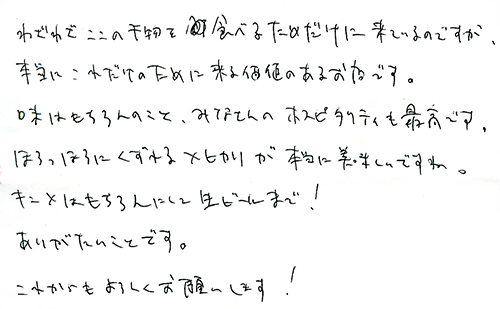 わざわざここの干物を食べるためだけに来ているのですが、
本当にこれだけのために来る価値のあるお店です。
味はもちろんのこと、みなさんのホスピタリティも最高です。
ほろっほろにくずれるメヒカリが本当に美味しいですね。
キンメはもちろんにして生ビールまで！
ありがたいことです。
これからもよろしくお願いします！